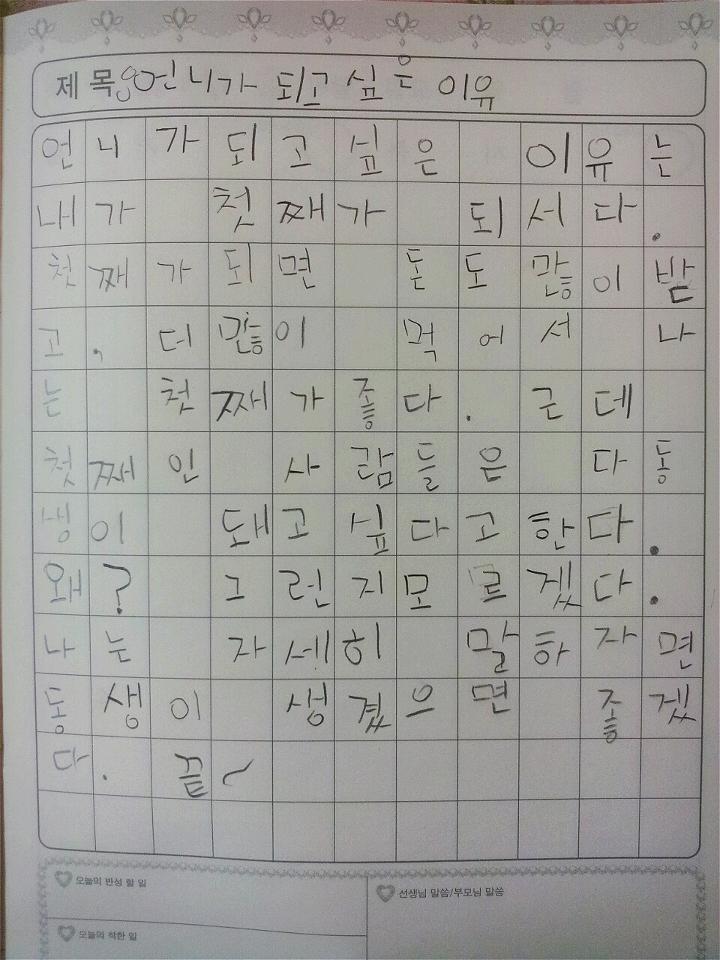 제 목 : 언니가 되고 싶은 이유
언니가 되고 싶은 이유는
내가 첫째가 되서다.
첫째가 되면 돈도 많이 받
고, 더 많이 먹어서 나
는 첫째가 좋다. 근데
첫째인 사람들은 다 동
생이 돼고 싶다고 한다.
왜? 그런지모르겠다.
나는 자세히 말하자면
동생이 생겼으면 좋겠
다. 끝~
오늘의 반성 할 일
선생님 말씀/부모님 말씀
오늘의 착한 일